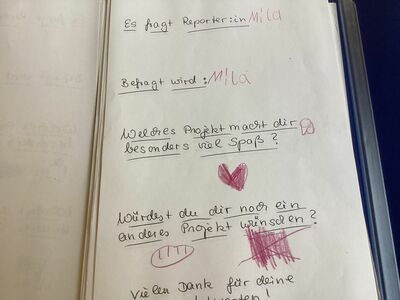 Es fragt Reporter:in Mila
Befragt wird: Mila
Welches Projekt macht dir
besonders viel Spaß?
Würdest du dir noch ein
anderes Projekt wünschen?
Vielen Dank für deine